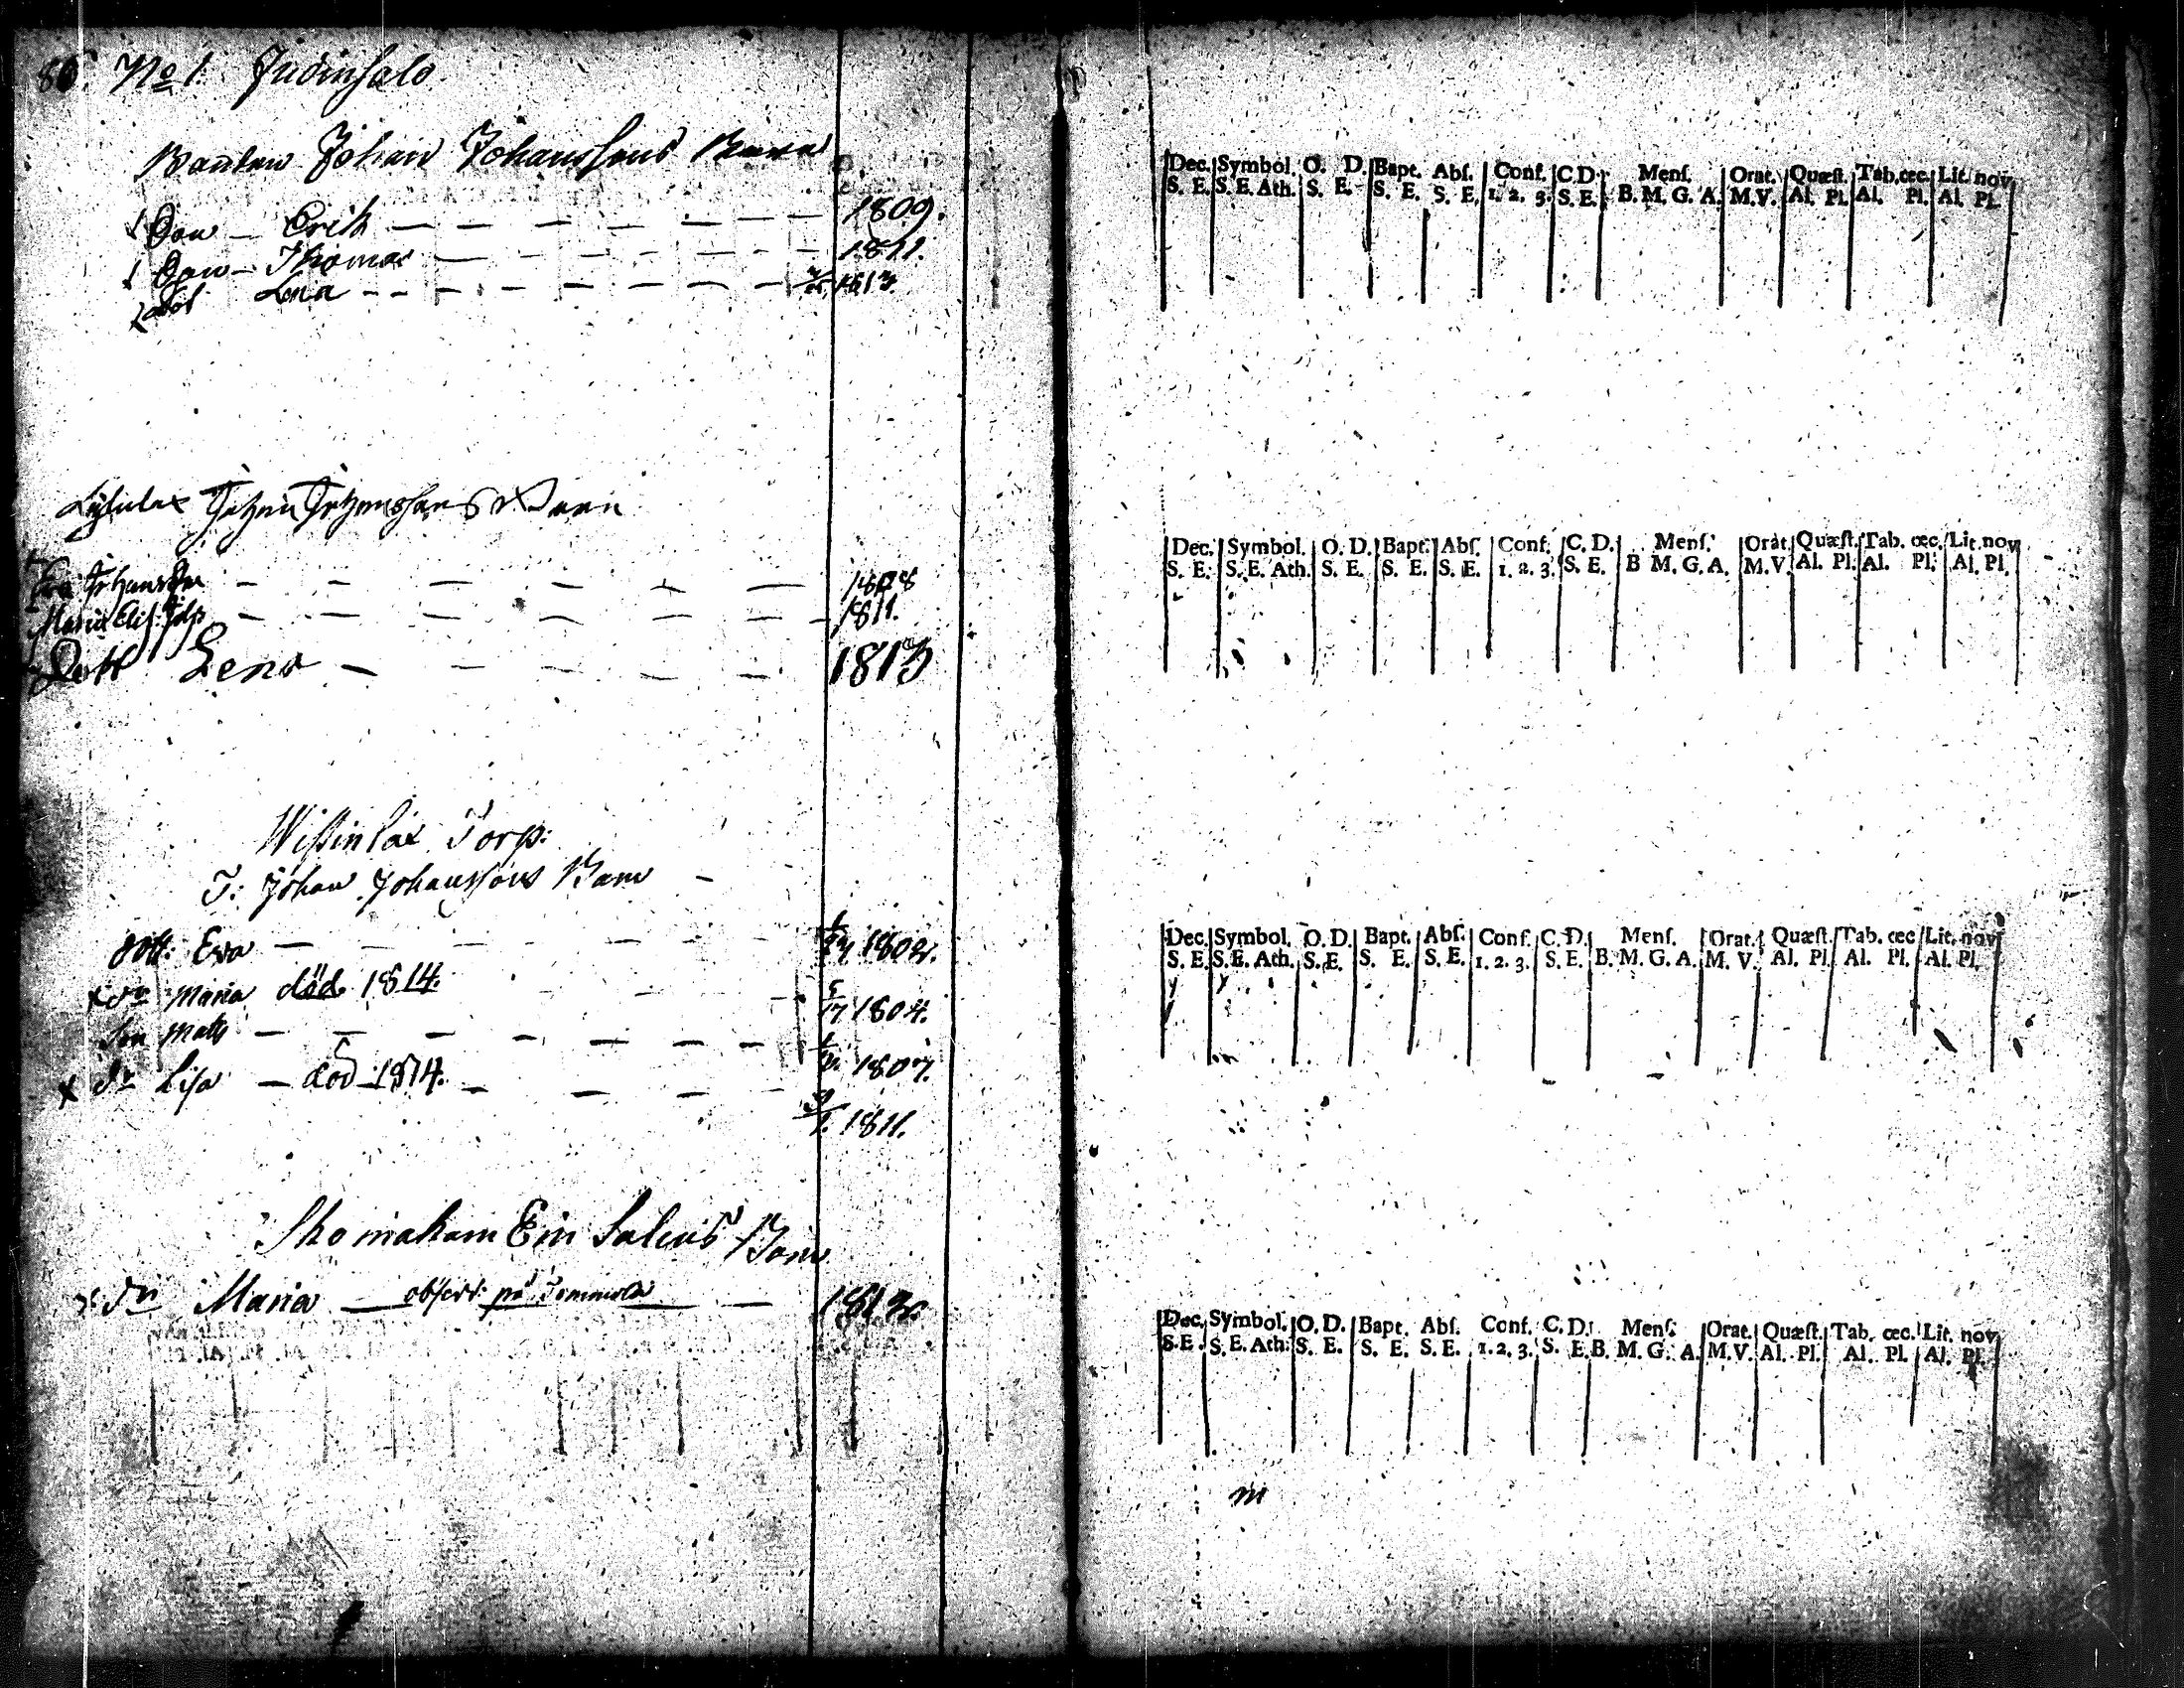 86. No 1. Judinsalo
Bonden Johan Johanssons Barn
Son — Erik 1809.
Son — Thomas 1811.
dot Lena 1813.
Johan Johanssons Barn
Eva Johansdr 1808
Maria Elis: 1811.
Dott Lena 1813
Wissinlax Torp:
T: Johan Johanssons Barn
dott: Eva 1802.
dr Maria död 1814. 1804.
Son Mats 1807.
dr Lisa — död 1814. 1811.
Barn
Dr Maria — observ: på 1813.
Dec. Symbol. O. D. Bapt. Abſ. Conf. C.D. Menſ. Orat. Quæſt. Tab. œc. Lit. nov.
S. E. S. E. Ath. S. E. S. E. S. E. 1. 2. 3. S. E. B. M. G. A. M. V. Al. Pl. Al. Pl. Al. Pl.
Dec. Symbol. O. D. Bapt. Abſ. Conf. C. D. Menſ. Orat. Quæſt. Tab. œc. Lit. nov
S. E. S. E. Ath. S. E. S. E. S. E. 1. 2. 3. S. E. B M. G. A. M. V. Al. Pl. Al. Pl. Al. Pl.
Dec. Symbol. O. D. Bapt. Abſ. Conf. C. D. Menſ. Orat. Quæſt. Tab. œc. Lit. nov
S. E. S. E. Ath. S. E. S. E. S. E. 1. 2. 3. S. E. B. M. G. A. M. V. Al. Pl. Al. Pl. Al. Pl.
Dec. Symbol. O. D. Bapt. Abſ. Conf. C. D. Menſ. Orat. Quæſt. Tab. œc. Lit. nov
S. E. S. E. Ath. S. E. S. E. S. E. 1. 2. 3. S. E. B. M. G. A. M. V. Al. Pl. Al. Pl. Al. Pl.
m